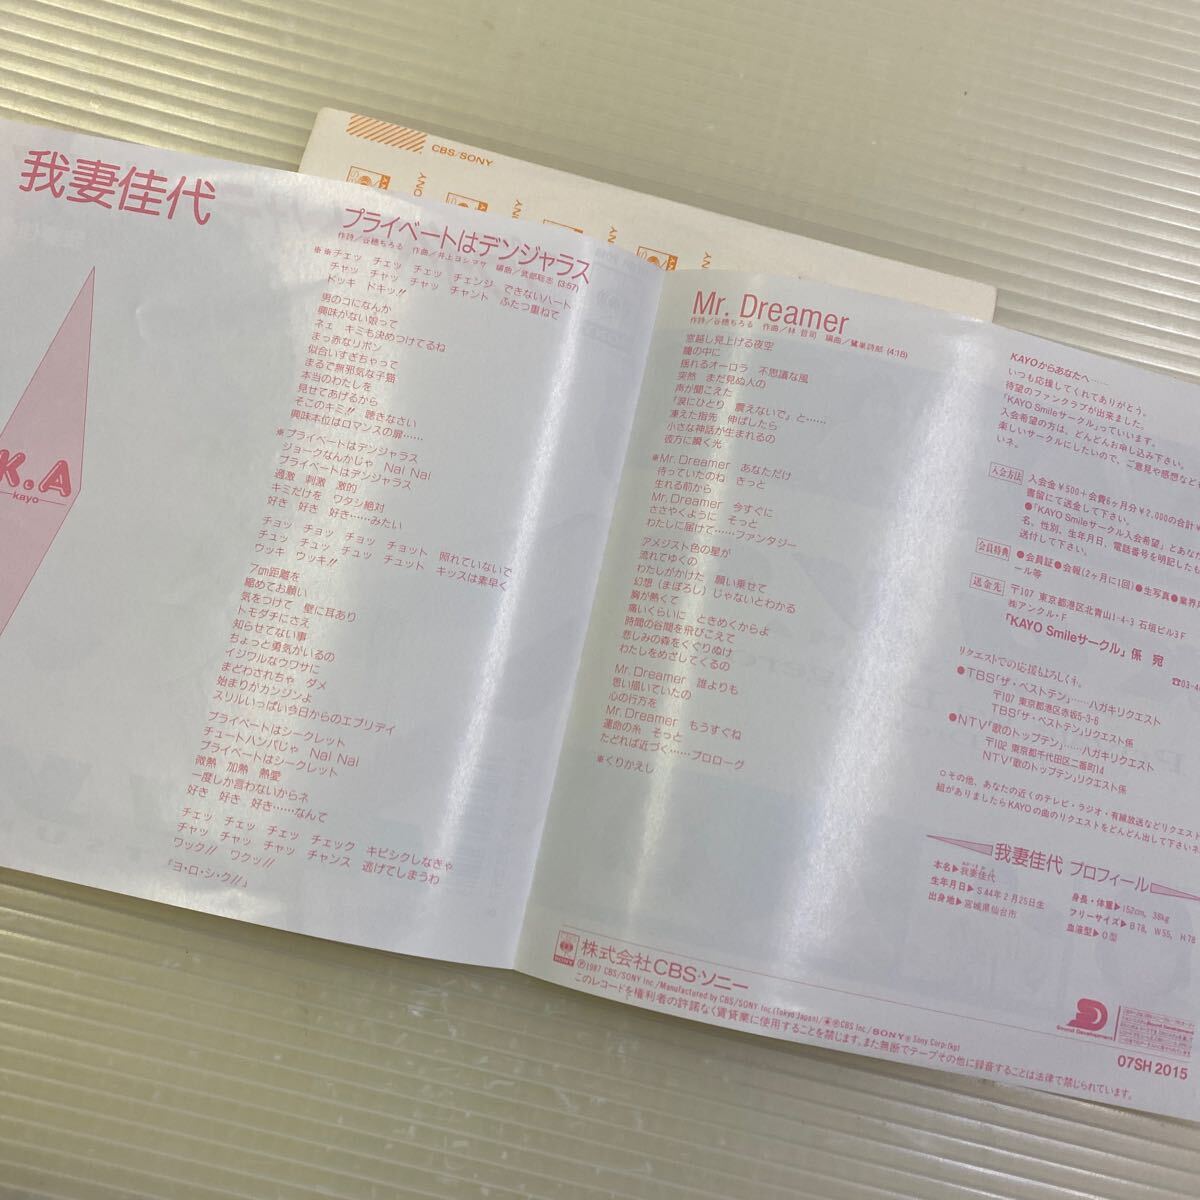 CBS/SONY
我妻佳代
K.A
kayo
プライベートはデンジャラス
作詩／谷穂ちろる 作曲／井上ヨシマサ 編曲／武部聡志 (3:57)
※※チェッ チェッ チェッ チェンジ できないハート
チャッ チャッ チャッ チャント ふたつ重ねて
ドッキ ドキッ!!
男のコになんか
興味がない娘って
ネェ キミも決めつけてるね
まっ赤なリボン
似合いすぎちゃって
まるで無邪気な子猫
本当のわたしを
見せてあげるから
そこのキミ!! 聴きなさい
興味本位はロマンスの扉……
※プライベートはデンジャラス
ジョークなんかじゃ Nai Nai
プライベートはデンジャラス
過激 刺激 激的
キミだけを ワタシ絶対
好き 好き 好き……みたい
チョッ チョッ チョッ チョット 照れていないで
チュッ チュッ チュッ チュット キッスは素早く
ウッキ ウッキ!!
7㎝距離を
縮めてお願い
気をつけて 壁に耳あり
トモダチにさえ
知らせてない事
ちょっと勇気がいるの
イジワルなウワサに
まどわされちゃ ダメ
始まりがカンジンよ
スリルいっぱい今日からのエブリデイ
プライベートはシークレット
チュートハンパじゃ Nai Nai
プライベートはシークレット
微熱 加熱 熱愛
一度しか言わないからネ
好き 好き 好き……なんて
チェッ チェッ チェッ チェック キビシクしなきゃ
チャッ チャッ チャッ チャンス 逃げてしまうわ
ワック!! ワクッ!!
「ヨ・ロ・シ・ク!!」
Mr. Dreamer
作詩／谷穂ちろる 作曲／林 哲司 編曲／鷺巣詩郎 (4:18)
窓越し見上げる夜空
瞳の中に
揺れるオーロラ 不思議な風
突然 まだ見ぬ人の
声が聞こえた
「涙にひとり 震えないで」と……
凍えた指先 伸ばしたら
小さな神話が生まれるの
彼方に瞬く光
※Mr. Dreamer あなただけ
待っていたのね きっと
生れる前から
Mr. Dreamer 今すぐに
ささやくように そっと
わたしに届けて……ファンタジー
アメジスト色の星が
流れてゆくの
わたしがかけた 願い乗せて
幻想(まぼろし)じゃないとわかる
胸が熱くて
痛いくらいに ときめくからよ
時間の谷間を飛びこえて
悲しみの森をくぐりぬけ
わたしをめざしてくるの
Mr. Dreamer 誰よりも
思い描いていたの
心の行方を
Mr. Dreamer もうすぐね
運命の糸 そっと
たどれば近づく……プロローグ
※くりかえし
KAYOからあなたへ……
いつも応援してくれてありがとう。
待望のファンクラブが出来ました。
「KAYO Smileサークル」っていいます。
入会希望の方は、どんどんお申し込み下さい。
楽しいサークルにしたいので、ご意見や感想など
いネ。
入会方法 入会金￥500＋会費6ヶ月分￥2,000の合計￥
書留にて送金して下さい。
●「KAYO Smileサークル入会希望」とあなた
名、性別、生年月日、電話番号を明記したも
送付して下さい。
会員特典 ●会員証●会報(2ヶ月に1回)●生写真●業界
ール等
送金先 〒107 東京都港区北青山1-4-3 石垣ビル3F
㈱アンクル・F
「KAYO Smileサークル」係 宛
☎03-4
リクエストでの応援もよろしくネ。
●TBS「ザ・ベストテン」……ハガキリクエスト
〒107 東京都港区赤坂5-3-6
TBS「ザ・ベストテン」リクエスト係
●NTV「歌のトップテン」……ハガキリクエスト
〒102 東京都千代田区二番町14
NTV「歌のトップテン」リクエスト係
○その他、あなたの近くのテレビ・ラジオ・有線放送などリクエスト
組がありましたらKAYOの曲のリクエストをどんどん出して下さいネ
我妻佳代 プロフィール
本名▶我妻佳代
生年月日▶S44年2月25日生
出身地▶宮城県仙台市
身長・体重▶152cm, 38kg
フリーサイズ▶B78, W55, H78
血液型▶O型
株式会社CBS・ソニー
Ⓟ1987 CBS/SONY Inc./Manufactured by CBS/SONY Inc.(Tokyo Japan)/CBS Inc./SONY ® Sony Corp.(kg)
このレコードを権利者の許諾なく賃貸業に使用することを禁じます。また無断でテープその他に録音することは法律で禁じられています。
Sound Development
07SH 2015